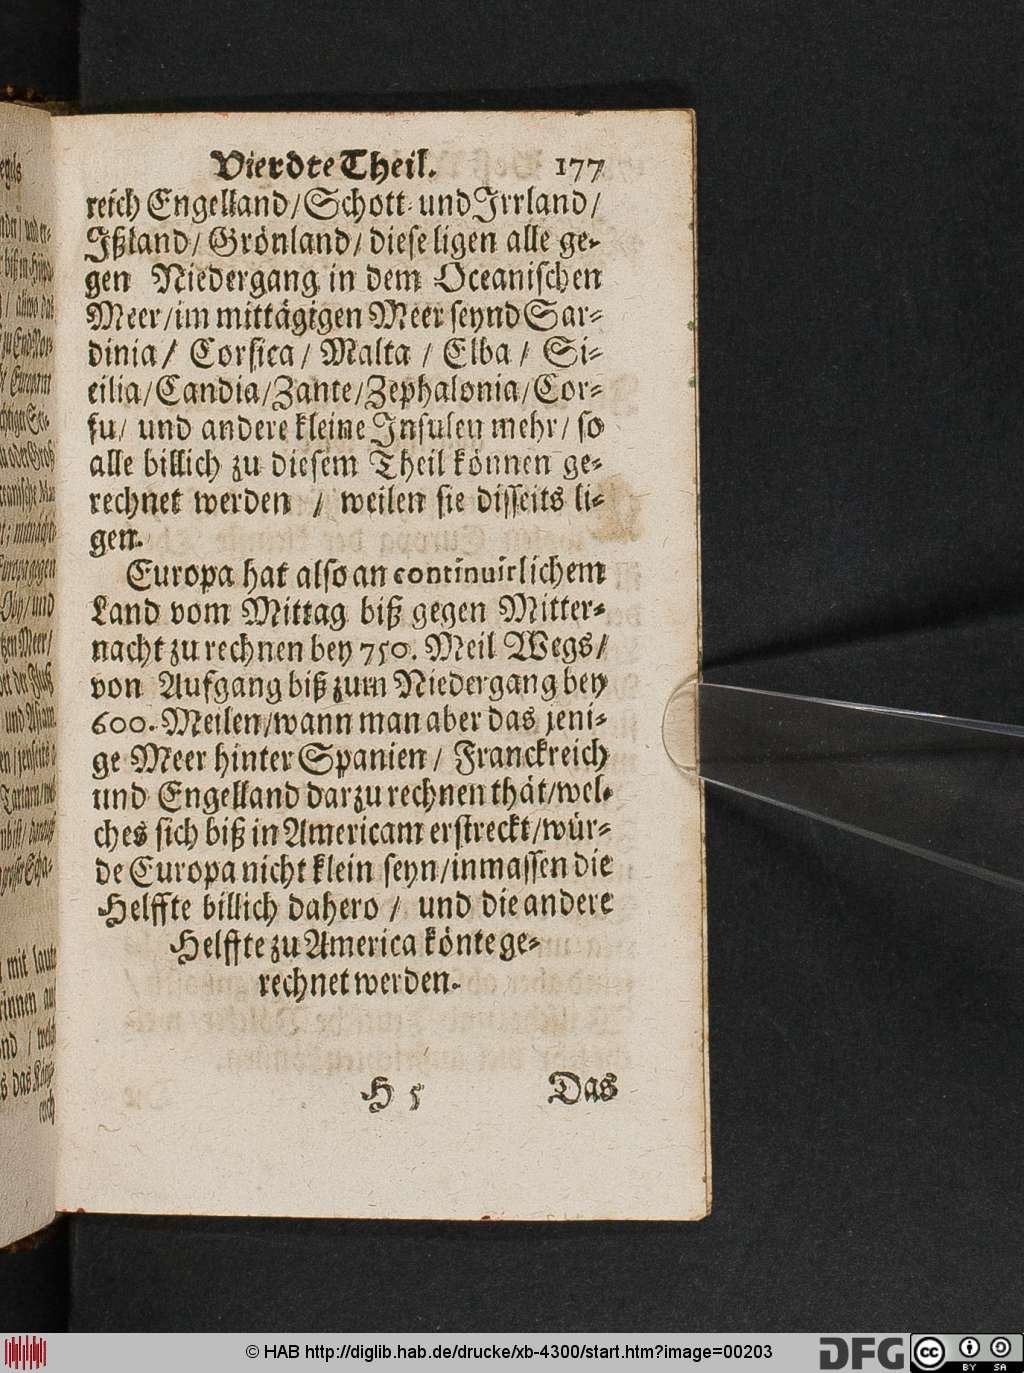 Vierdte Theil. 177
reich Engelland/Schott- und Irrland/
Ißland/ Grönland/ diese ligen alle ge-
gen Niedergang in dem Oceanischen
Meer/im mittägigen Meer seynd Sar-
dinia/ Corsica/ Malta / Elba / Si-
cilia/Candia/Zante/Zephalonia/Cor-
fu/ und andere kleine Insulen mehr/ so
alle billich zu diesem Theil können ge-
rechnet werden / weilen sie disseits li-
gen.
Europa hat also an continuirlichem
Land vom Mittag biß gegen Mitter-
nacht zu rechnen bey 750. Meil Wegs/
von Aufgang biß zum Niedergang bey
600. Meilen/wann man aber das jeni-
ge Meer hinter Spanien/ Franckreich
und Engelland darzu rechnen thät/wel-
ches sich biß in Americam erstreckt/wür-
de Europa nicht klein seyn/inmassen die
Helffte billich dahero / und die andere
Helffte zu America könte ge-
rechnet werden.
H 5 Das
© HAB http://diglib.hab.de/drucke/xb-4300/start.htm?image=00203
DFG
cc BY SA